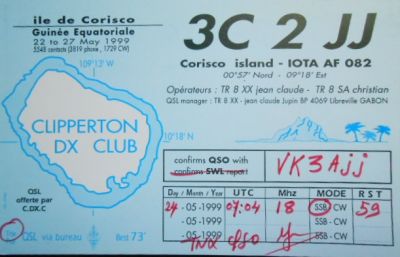 ile de Corisco
Guinée Equatoriale
22 to 27 May 1999
5548 contacts (3819 phone, 1729 CW)
3C 2 JJ
Corisco island - IOTA AF 082
00°57' Nord - 09°18' Est
Opérateurs : TR 8 XX jean claude - TR 8 SA christian
QSL manager : TR 8 XX - jean claude Jupin BP 4069 Libreville GABON
109°13' W
10°18 N
CLIPPERTON
DX CLUB
confirms QSO with
confirms SWL report
VK3AJJ
Day / Month / Year UTC Mhz MODE R S T
24 - 05 -1999 07:04 18 SSB - CW 59
- 05 -1999 SSB - CW
- 05 -1999 SSB - CW
TNX QSO
QSL
offerte par
C.DX.C
QSL via bureau
Best 73'